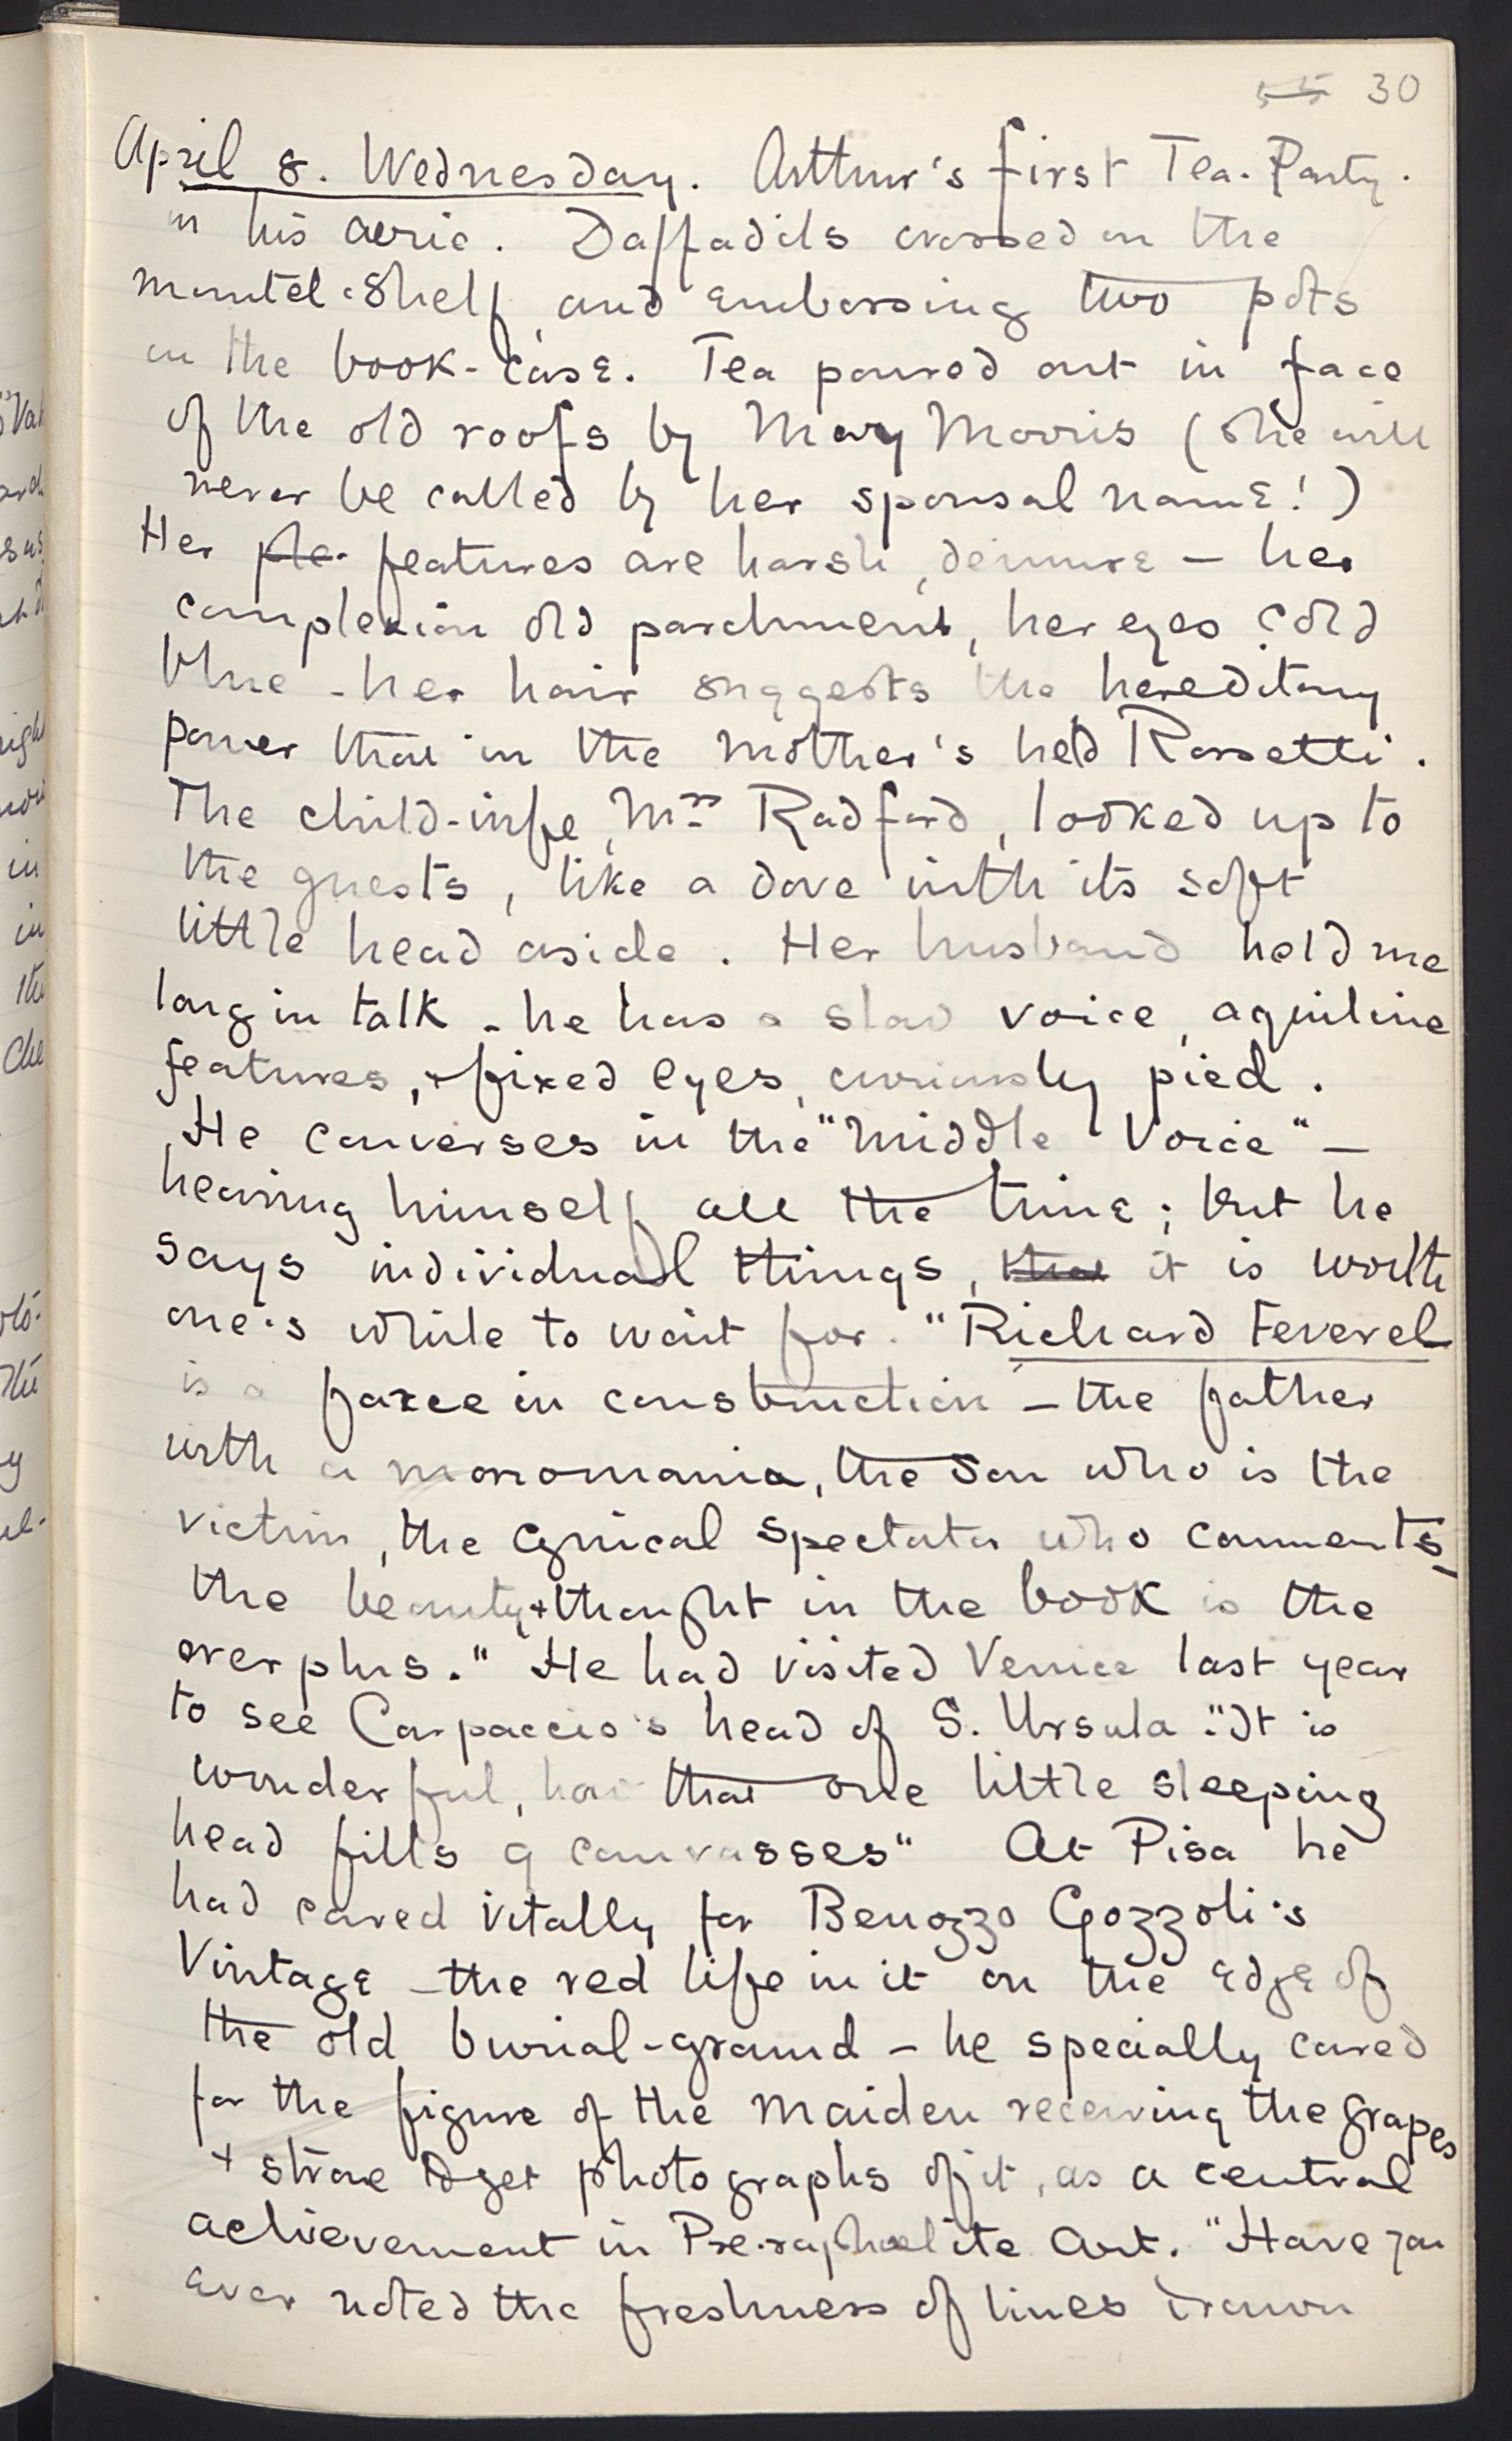 55 30
April 8. Wednesday. Arthur's first Tea-Party.
in his aerie. Daffadils crossed on the
mantel-shelf, and embossing two pots
on the book-case. Tea poured out in face
of the old roofs by May Morris (she will
never be called by her spousal name!)
Her features are harsh, demure – her
complexion old parchment, her eyes cold
blue – her hair suggests the hereditary
power that in the mother's held Rossetti.
The child-wife, Mrs Radford, looked up to
the guests, like a dove with its soft
little head aside. Her husband held me
long in talk – he has a slow voice, aquiline
features, & fixed eyes, curiously pied.
He converses in the "Middle Voice" –
hearing himself all the time; but he
says individual things, that it is worth
one's while to wait for. "Richard Feverel
is a farce in construction – the father
with a monomania, the son who is the
victim, the cynical spectator who comments –
the beauty & thought in the book is the
overplus." He had visited Venice last year
to see Carpaccio's head of S. Ursula. "It is
wonderful, how that one little sleeping
head fills 9 canvasses" At Pisa he
had cared vitally for Benozzo Gozzoli's
Vintage – the red life in it on the edge of
the old burial-ground – he specially cared
for the figure of the maiden receiving the grapes
& strove to get photographs of it, as a central
achievement in Pre-raphaelite Art. "Have you
ever noted the freshness of lines drawn